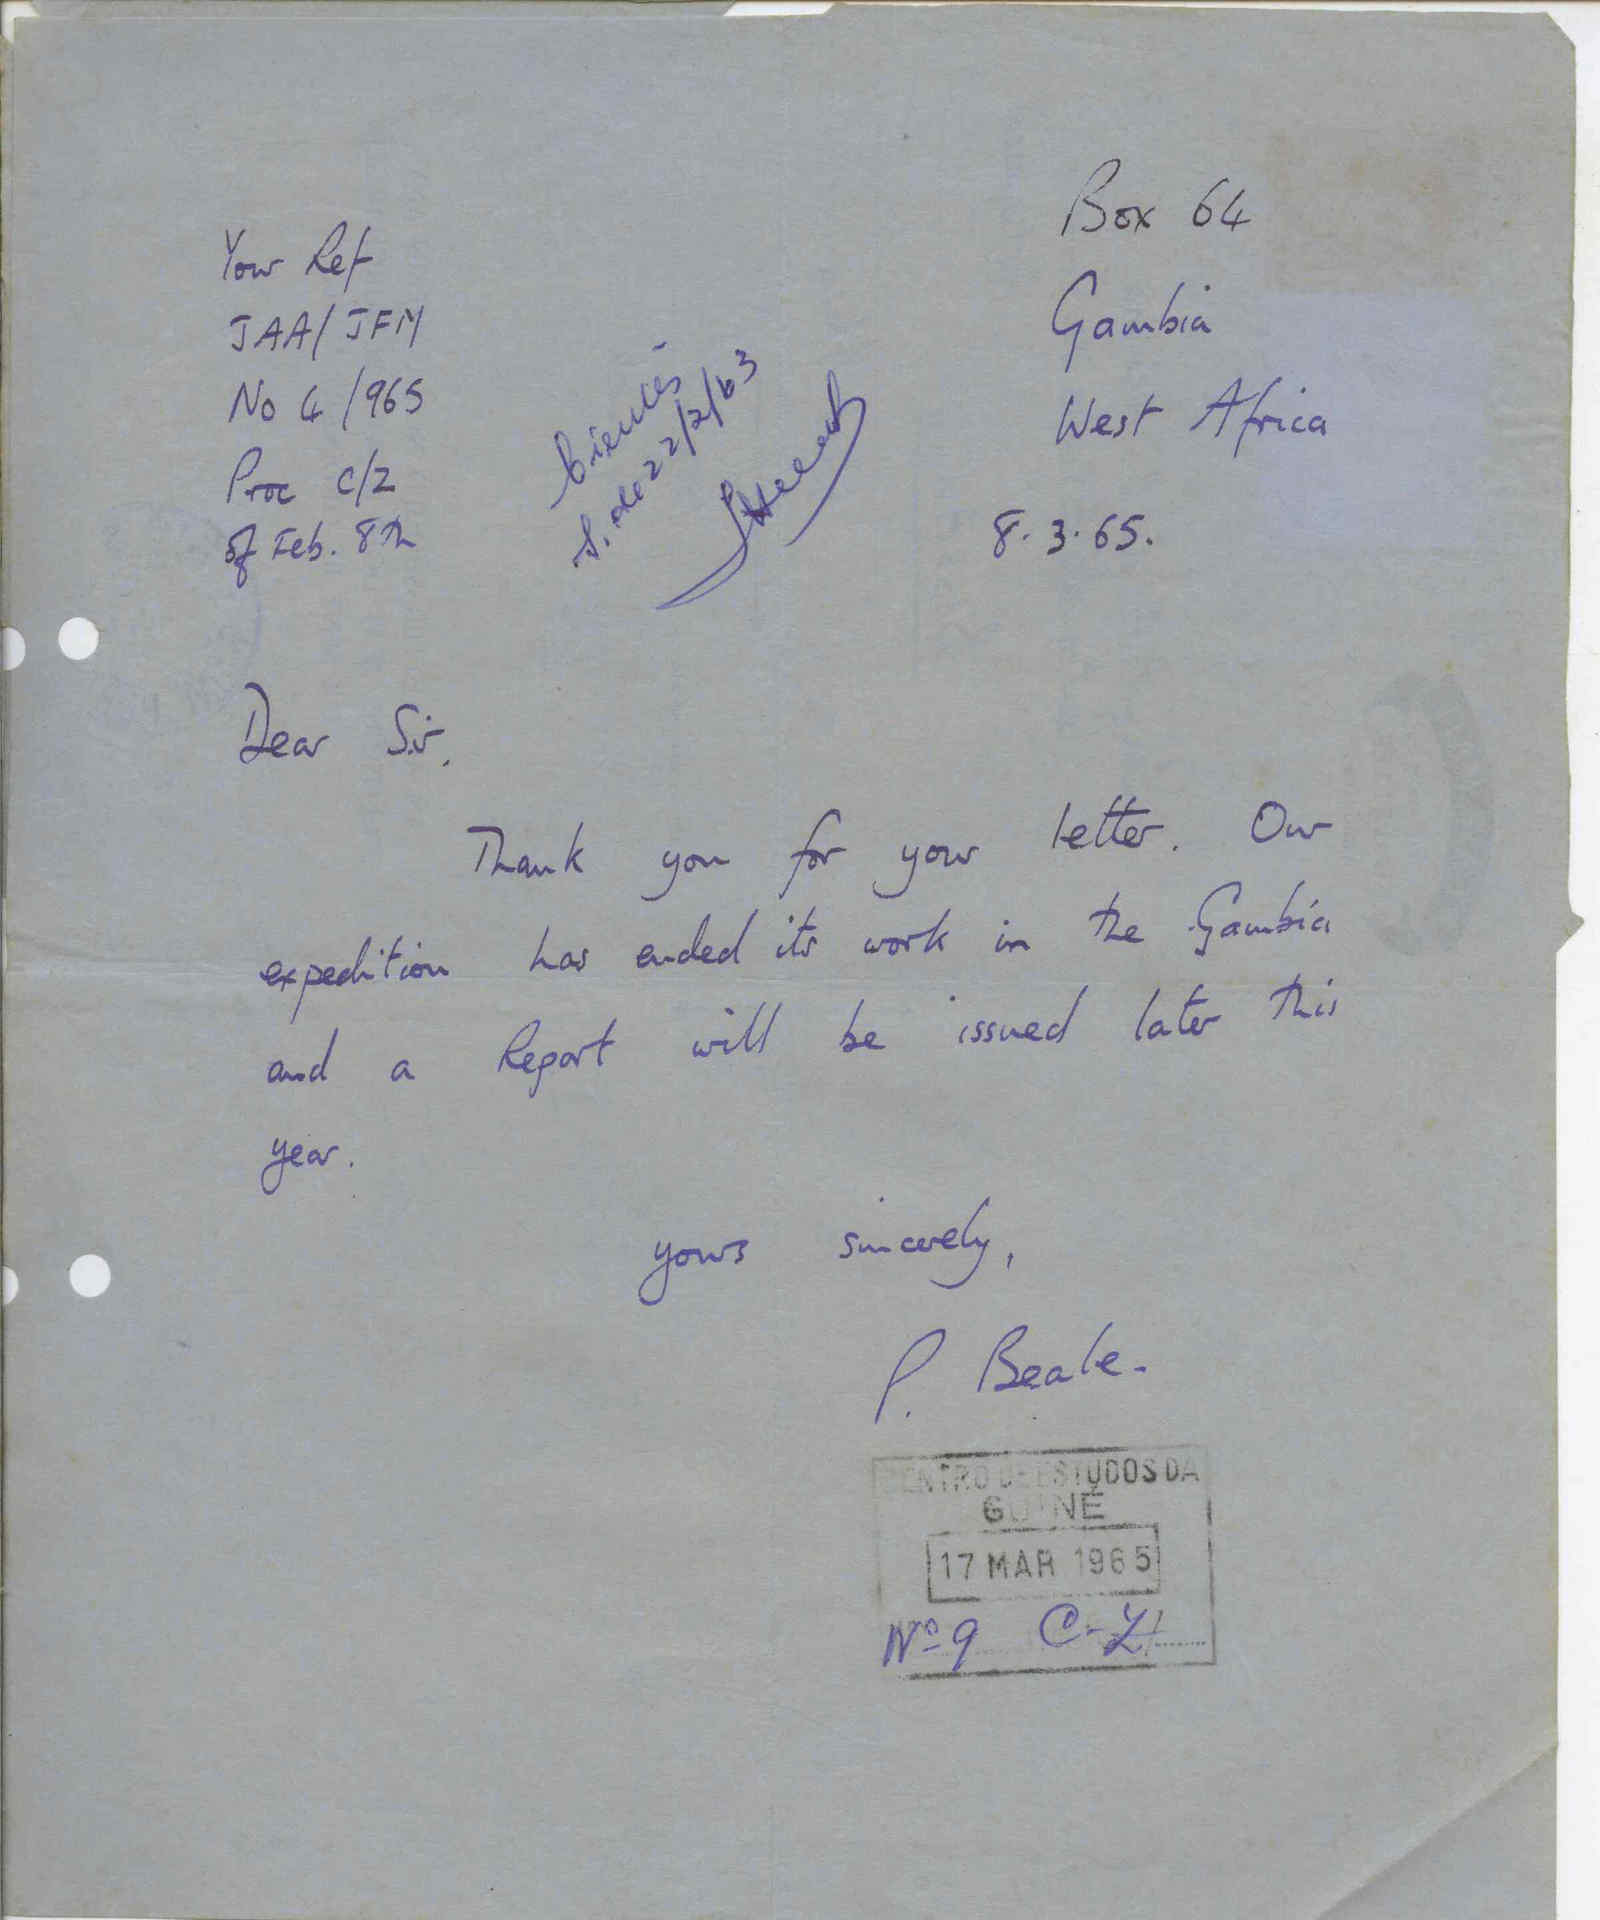 Box 64
Gambia
West Africa
8.3.65.
Your Ref
JAA/JFM
No 4/965
Proc C/2
of Feb. 8th
22/2/63
Dear Sir,
Thank you for your letter. Our
expedition has ended its work in the Gambia
and a Report will be issued later this
year.
yours sincerely,
P. Beale.
CENTRO DE ESTUDOS DA
GUINÉ
17 MAR 1965
Nº 9 C-2